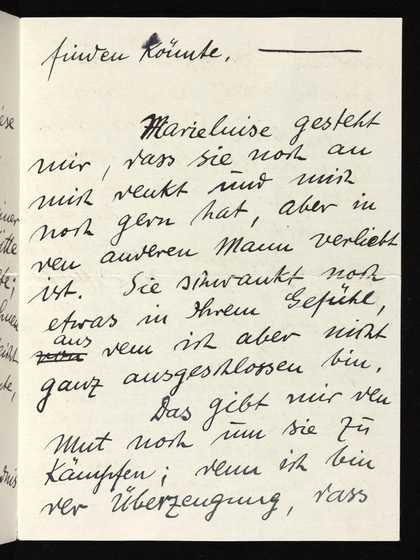 finden könnte.
Marieluise gesteht
mir, dass sie noch an
mich denkt und mich
noch gern hat, aber in
den anderen Mann verliebt
ist. Sie schwankt noch
etwas in Ihrem Gefühl,
aus
dem ich aber nicht
ganz ausgeschlossen bin.
Das gibt mir den
Mut noch um sie zu
Kämpfen; denn ich bin
der Überzeugung, dass